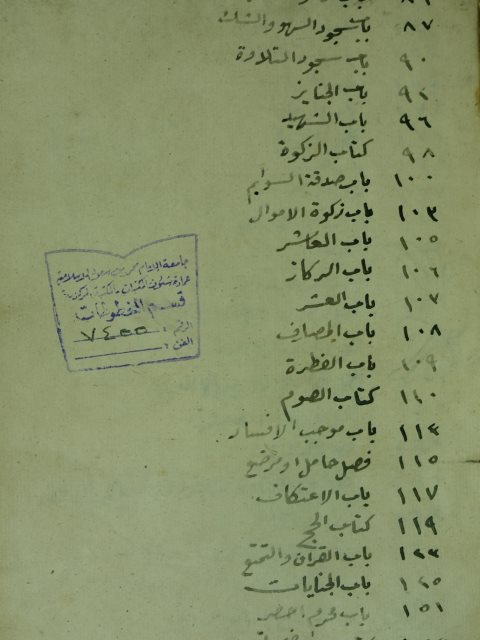 ٨٧ باب سجود السهو والشك
٩٠ باب سجود التلاوة
باب الجنايز
٩٦ باب الشهيد
٩٨ كتاب الزكوة
١٠٠ باب صدقة السوايم
١٠٣ باب زكوة الاموال
١٠٥ باب العاشر
١٠٦ باب الركاز
١٠٧ باب العشر
١٠٨ باب المصارف
١٠٩ باب الفطرة
١١٠ كتاب الصوم
١١٣ باب موجب الافساد
١١٥ فصل حامل او مرضع
١١٧ باب الاعتكاف
١١٩ كتاب الحج
١٢٣ باب القران والتمتع
١٢٥ باب الجنايات
١٥١ باب محرم احصر
جامعة الامام محمد بن سعود الاسلامية
عمادة شئون المكتبات - المكتبة المركزية
قسم المخطوطات
الرقم :
الفن :